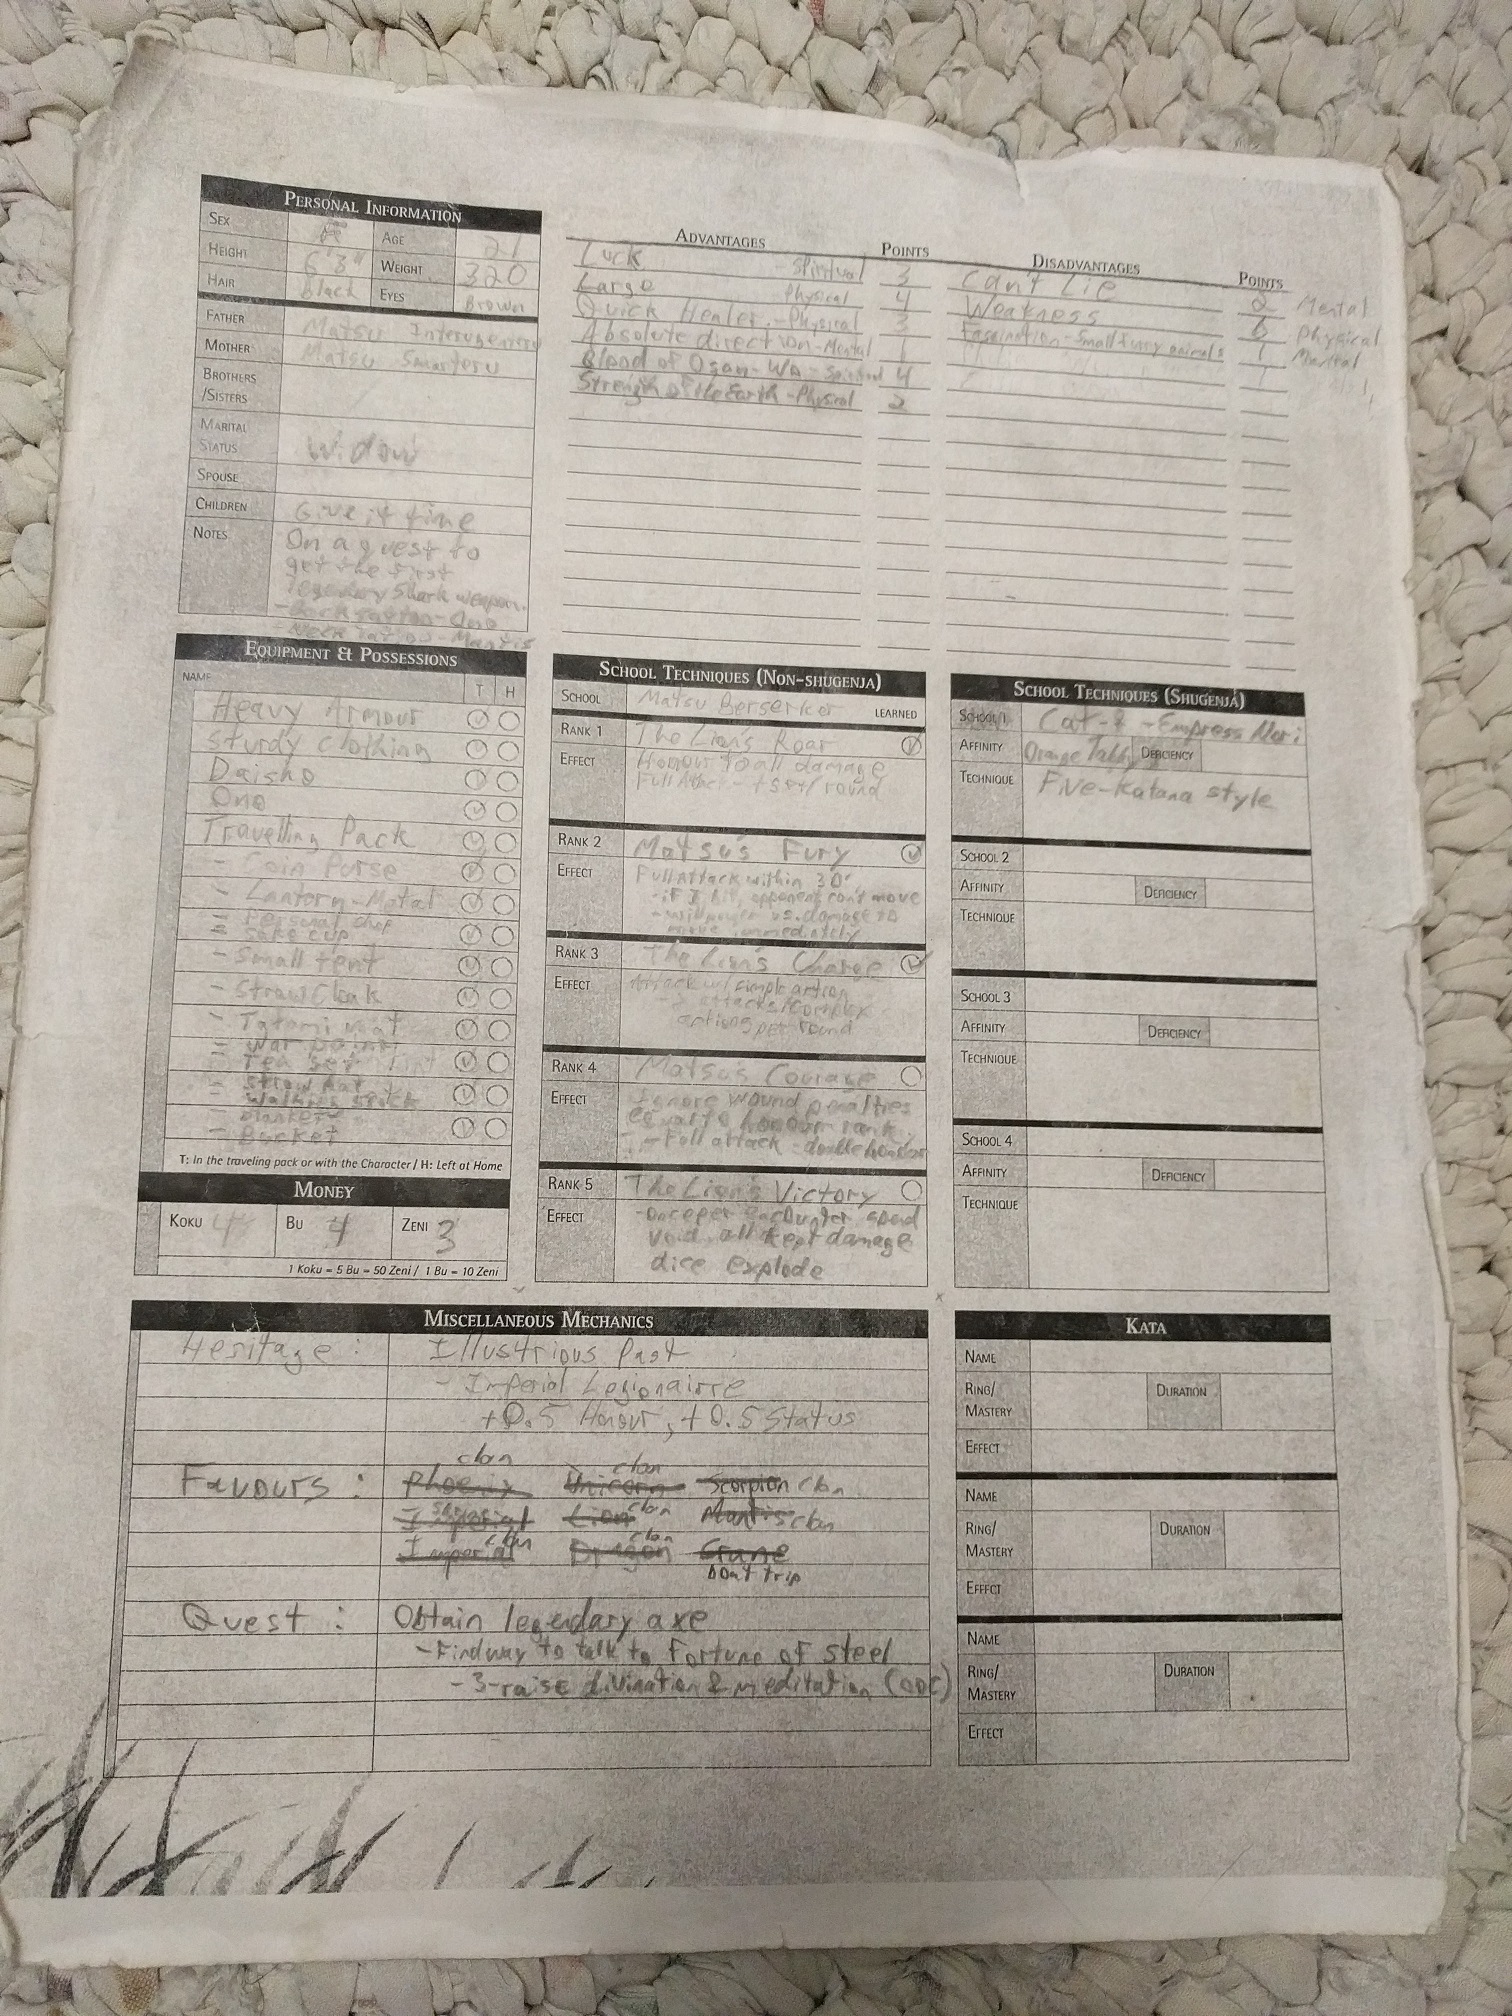 PERSONAL INFORMATION
SEX F AGE 21
HEIGHT 6'3" WEIGHT 320
HAIR Black EYES Brown
FATHER Matsu
MOTHER Matsu Smarteru
BROTHERS
/SISTERS
MARITAL
STATUS Widow
SPOUSE
CHILDREN Give it time
NOTES On a quest to
get the first
legendary Shark weapon.
ADVANTAGES POINTS DISADVANTAGES POINTS
Luck - Spiritual 3 Can't Lie 2 Mental
Large Physical 4 Weakness 6 Physical
Quick Healer - Physical 3 Fascination - Small furry animals 1 Mental
Absolute direction - Mental 1
Blood of Osan-Wo - Spiritual 4
Strength of the Earth - Physical 2
EQUIPMENT & POSSESSIONS
NAME T H
Heavy Armour
Sturdy clothing
Daisho
Ono
Travelling Pack
- Coin Purse
- Lantern - Metal
- Personal chop
- Sake cup
- Small tent
- Straw Cloak
- Tatami mat
- War paint
- Tea set
- Straw hat
- Walking stick
- Blanket
- Bucket
T: In the traveling pack or with the Character / H: Left at Home
MONEY
KOKU 4 BU 4 ZENI 3
1 Koku = 5 Bu = 50 Zeni / 1 Bu = 10 Zeni
SCHOOL TECHNIQUES (NON-SHUGENJA)
SCHOOL Matsu Berserker LEARNED
RANK 1 The Lion's Roar
EFFECT Honour to all damage
Full Attack - +5ft/round
RANK 2 Matsu's Fury
EFFECT Full Attack within 30'
- if I hit, opponent can't move
- willpower vs. damage to
move immediately
RANK 3 The Lion's Charge
EFFECT Attack w/ simple action
- 2 attacks/complex
actions per round
RANK 4 Matsu's Courage
EFFECT Ignore wound penalties
equal to honour rank
- Full attack - double honour
RANK 5 The Lion's Victory
EFFECT - Once per encounter spend
void, all kept damage
dice explode
SCHOOL TECHNIQUES (SHUGENJA)
SCHOOL 1 Cat - Empress Nori
AFFINITY Orange Tabby DEFICIENCY
TECHNIQUE Five-Katana style
SCHOOL 2
AFFINITY DEFICIENCY
TECHNIQUE
SCHOOL 3
AFFINITY DEFICIENCY
TECHNIQUE
SCHOOL 4
AFFINITY DEFICIENCY
TECHNIQUE
MISCELLANEOUS MECHANICS
Heritage: Illustrious Past
- Imperial Legionairre
+0.5 Honour, +0.5 Status
clan clan
Favours: Phoenix Unicorn Scorpion clan
Imperial Lion clan Mantis clan
Imperial clan Dragon clan Crane
Don't trip
Quest: Obtain legendary axe
- Find way to talk to Fortune of steel
- 3-raise divination & meditation (OOC)
KATA
NAME
RING/
MASTERY DURATION
EFFECT
NAME
RING/
MASTERY DURATION
EFFECT
NAME
RING/
MASTERY DURATION
EFFECT